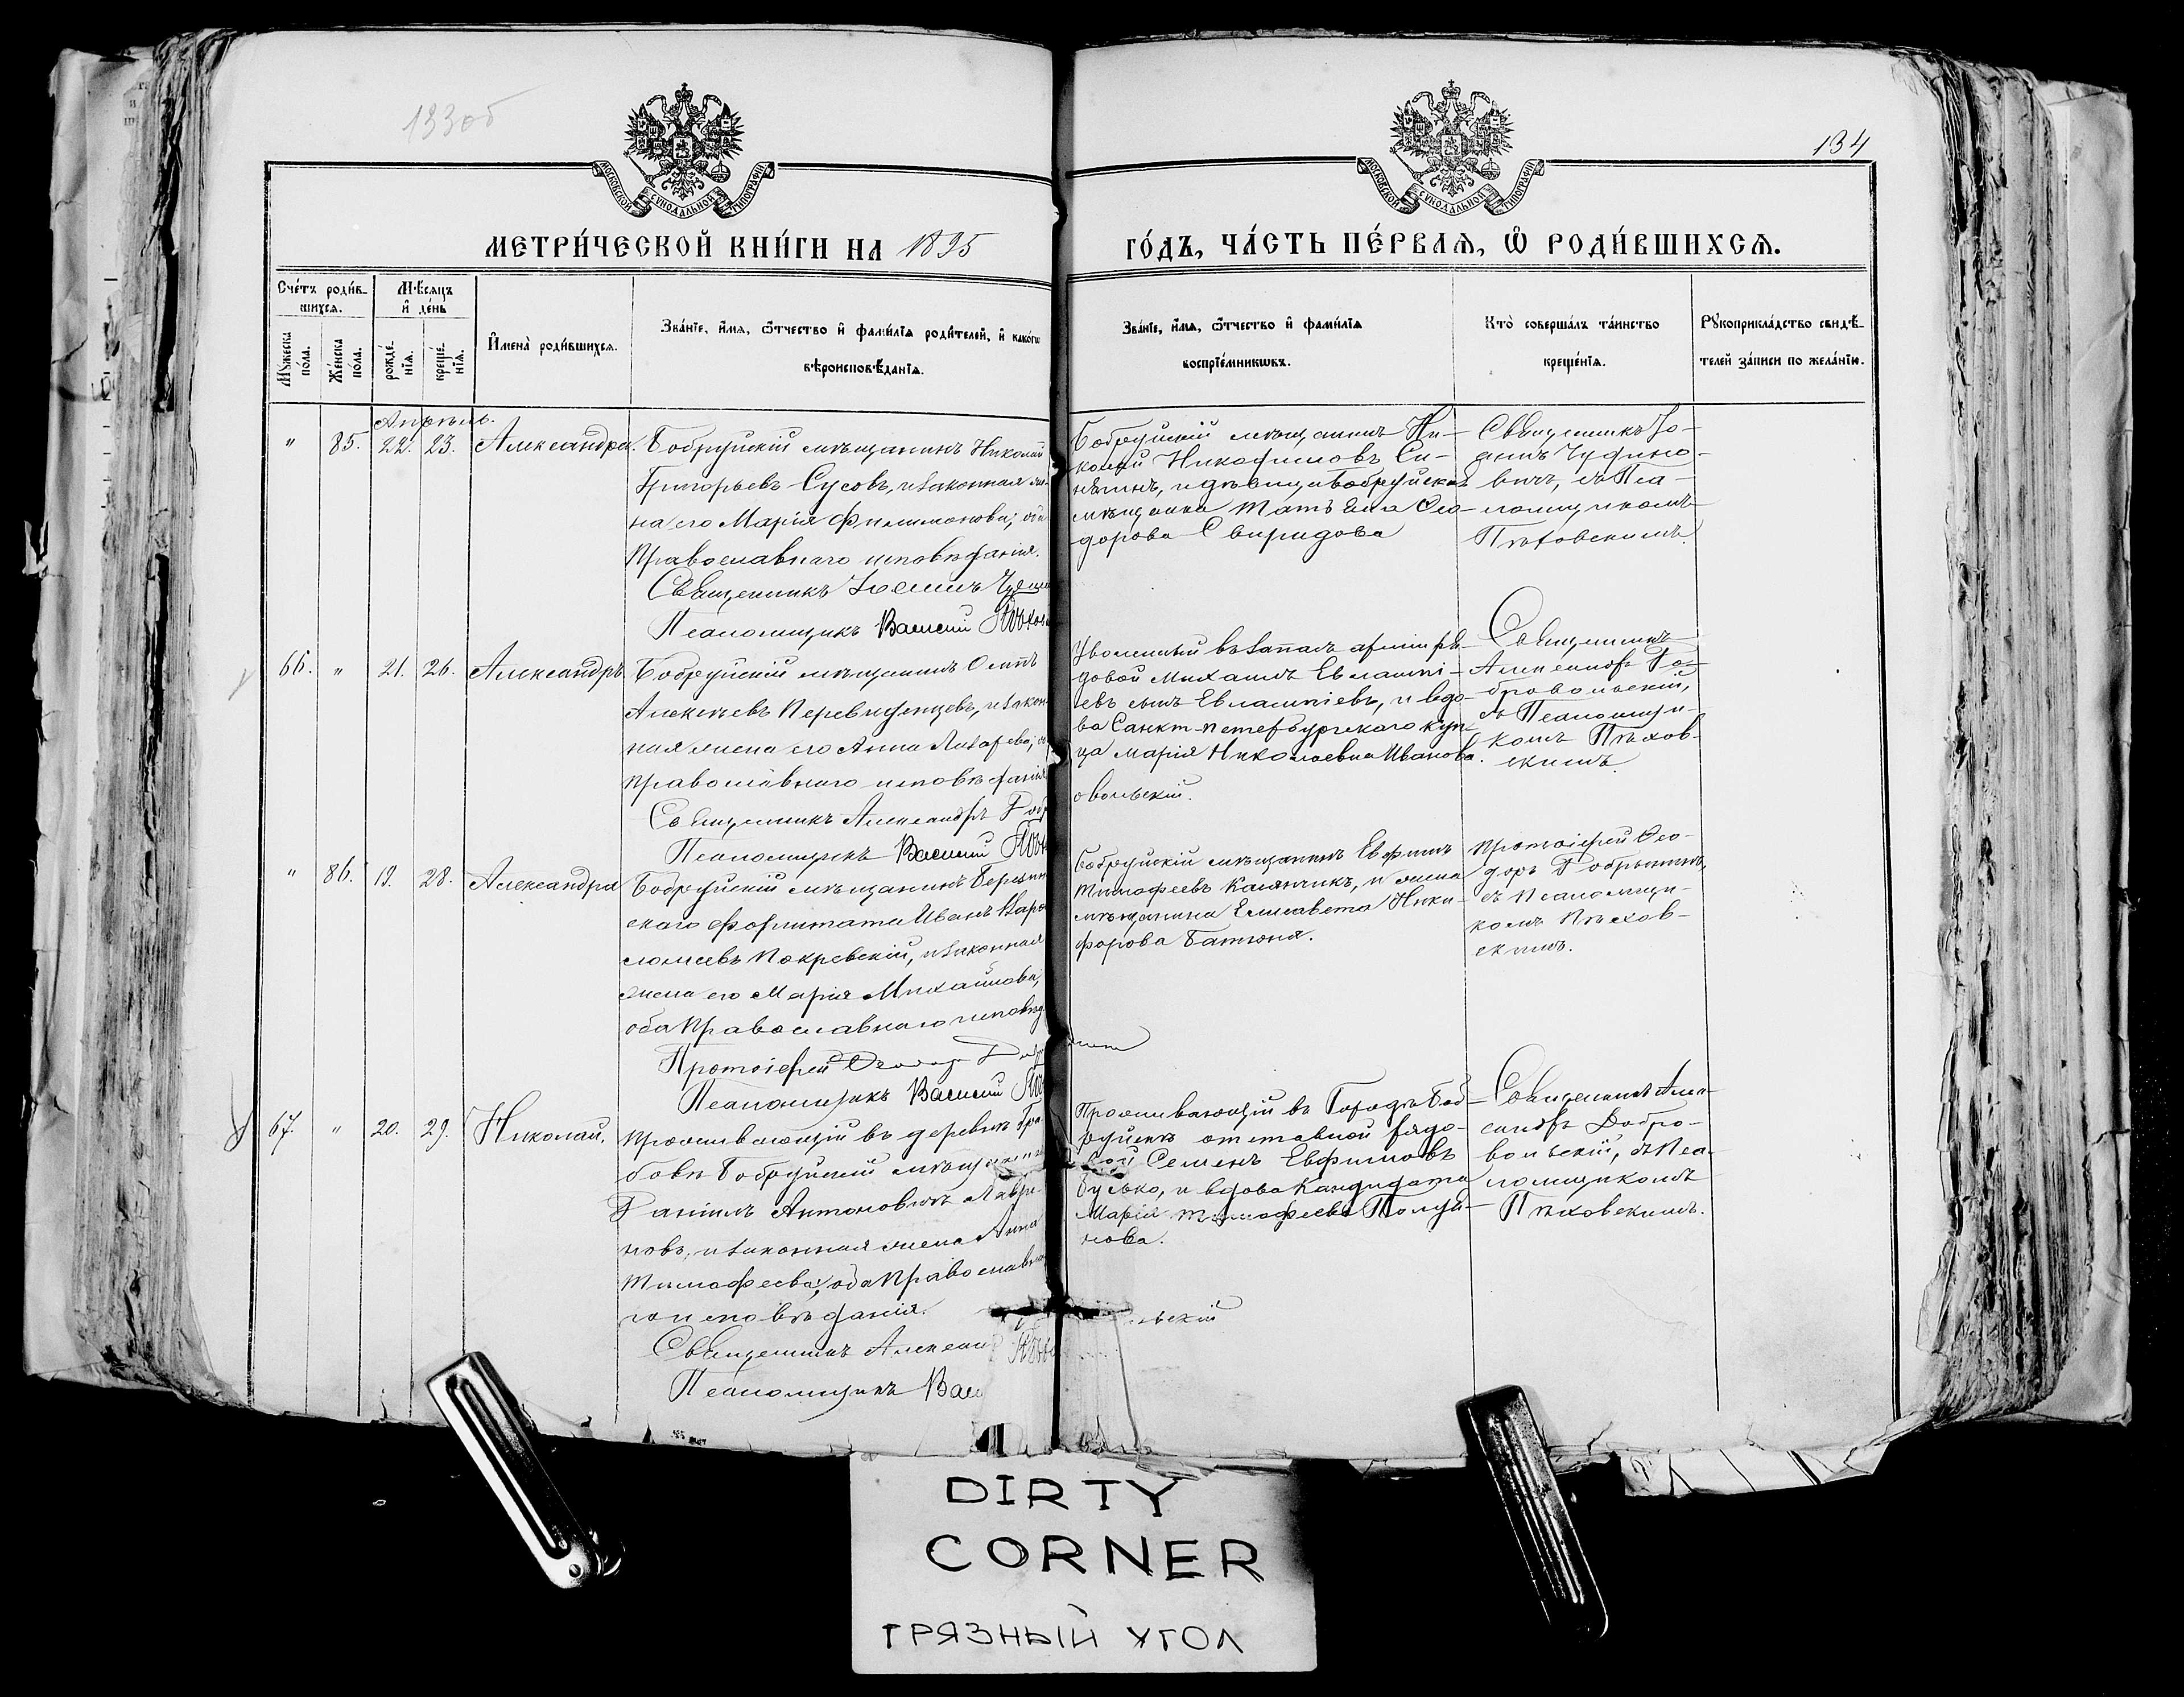 133об
134
МОСКОВСКОЙ СУНОДАЛЬНОЙ ТИПОГРАФІИ
МОСКОВСКОЙ СУНОДАЛЬНОЙ ТИПОГРАФІИ
МЕТРИ́ЧЕСКОЙ КНИ́ГИ НА 1895
ГО́ДЪ, ЧА́СТЬ ПЕ́РВАѦ, Ѽ РОДИ́ВШИХСѦ.
Сче́тъ роди́в-
шихсѧ.
Мꙋжеска по́ла.
Же́нска пола.
Мѣсяцъ
и҆ де́нь
рожде́-
нїѧ.
креще́-
нїѧ.
И҆мена̀ роди́вшихсѧ.
Зва́нїе, и҆́мѧ, ѻ҆́тчество и҆ фами́лїѧ роди́телей, и҆ како́гѡ
вѣроисповѣ́данїѧ.
Зва́нїе, и҆́мѧ, ѻ҆́тчество и҆ фами́лїѧ
воспрїе́мникѡвъ.
Кто̀ соверша́лъ та́инство
креще́нїѧ.
Рꙋкоприкла́дство свидѣ́-
телей за́писи по жела́нїю.
Апрѣль.
" 85. 22. 23. Александра.
Бобруйскій мѣщанинъ Николай
Григорьевъ Сусовъ, и законная же-
на его Марія Филимонова; оба
Православнаго исповѣданія.
Священникъ Іоаннъ
Псаломщикъ Василій
Бобруйскій мѣщанинъ Ни-
колай Никофимовъ Си-
няпинъ, и дѣвица Бобруйская
мѣщанка Татьяна Ѳео-
дорова Свиридова
Священникъ Іо-
аннъ
вичъ, съ Пса-
ломщикомъ
Пѣховскимъ.
66. " 21. 26. Александръ.
Бобруйскій мѣщанинъ
Алексѣевъ Перевиденцевъ, и закон-
ная жена его Анна Лазарева;
православнаго исповѣданія
Священникъ Александръ Добр
Псаломщикъ Василій
Уволенный въ запасъ арміи ря-
довой Михаилъ Евлампі-
евъ сынъ Евлампіевъ, и вдо-
ва Санкт-петербургскаго куп-
ца Марія Николаевна Иванова.
овольскій.
Священникъ
Александръ До-
бровольскій,
съ Псаломщи-
комъ Пѣхов-
скимъ.
" 86. 19. 28. Александра
Бобруйскій мѣщанинъ Березин-
скаго форштата Иванъ Варѳо
ломеевъ Покревскій, и законная
жена его Марія Михайлова,
оба Православнаго исповѣд
Протоіерей Ѳеодоръ
Псаломщикъ Василій
Бобруйскій мѣщанинъ Ефимъ
Тимофеевъ Касянчикъ, и жена
мѣщанина Елисавета Ники-
форова Батюня.
Протоіерей Ѳео-
доръ Добрынинъ,
съ Псаломщи-
комъ Пѣхов-
скимъ.
67. " 20. 29. Николай.
Проживающій въ деревнѣ
бовѣ Бобруйскій мѣщанинъ
Даніилъ Антоновичъ Лаври-
новъ, и законная жена Анна
Тимофеева; оба Православна
го исповѣданія.
Священникъ Александ
Псаломщикъ Вас
Проживающій въ Городѣ Боб-
руйскѣ отставной рядо-
вой Семенъ Евфимовъ
Бусько, и вдова Кандидата
Марія Тимофеева Полуй-
нова.
льскій
Священникъ Алек-
сандръ Добро-
вольскій, съ Пса-
ломщикомъ
Пѣховскимъ.
DIRTY
CORNER
ГРЯЗНЫЙ УГОЛ